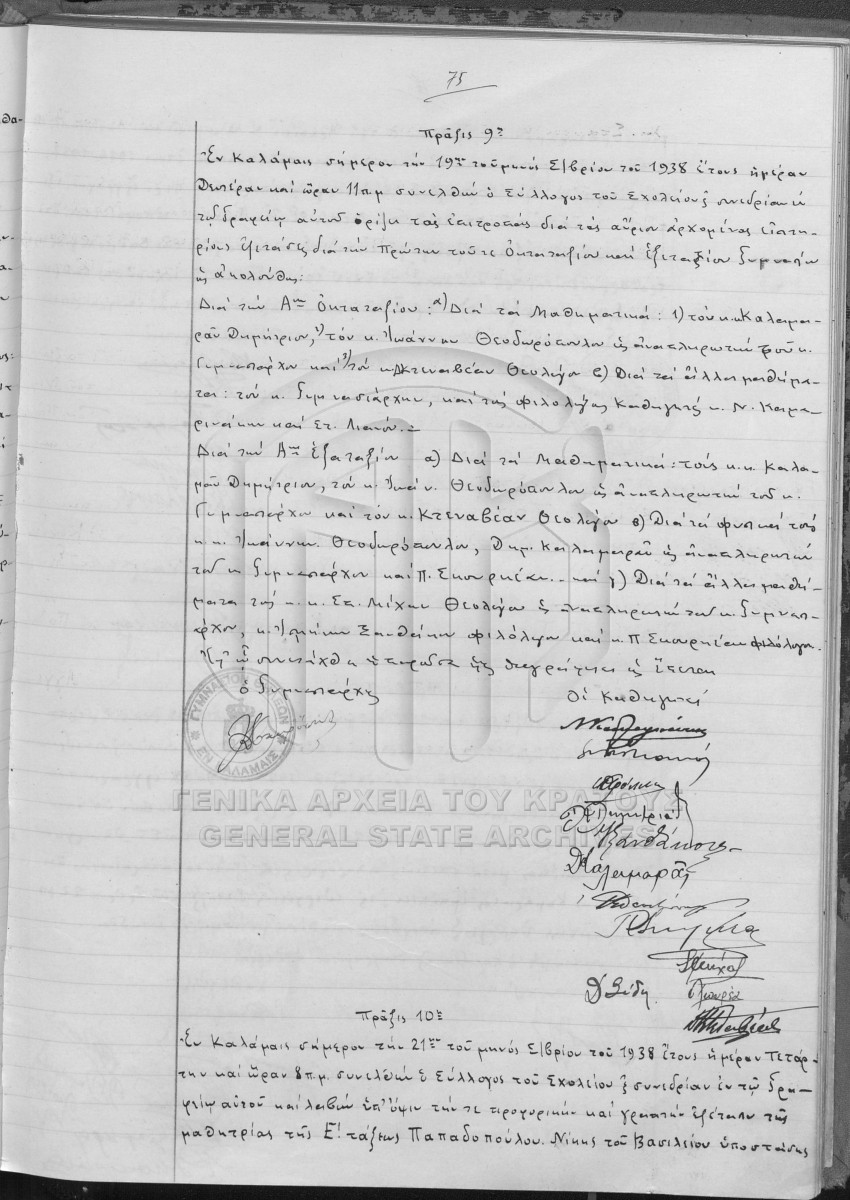 75
Πρᾶξις 9η
Ἐν Καλάμαις σήμερον τὴν 19ην τοῦ μηνὸς 7/βρίου τοῦ 1938 ἔτους ἡμέραν
Δευτέραν καὶ ὥραν 11 π.μ. συνελθὼν ὁ Σύλλογος τοῦ Σχολείου εἰς συνεδρίαν ἐν
τῷ Γραφείῳ αὐτοῦ ὁρίζει τὰς ἐπιτροπὰς διὰ τὰς αὔριον ἀρχομένας εἰσιτη-
ρίους ἐξετάσεις διὰ τὴν πρώτην τοῦ τε Ὀκταταξίου καὶ Ἑξαταξίου Γυμνασίου
ὡς ἀκολούθως:
Διὰ τὴν Αην Ὀκταταξίου: α) Διὰ τὰ Μαθηματικά: 1) τὸν κ. Καλαμα-
ρᾶν Δημήτριον, 2) τὸν κ. Ἰωάννην Θεοδωρόπουλον ὡς ἀναπληρωτὴν τοῦ κ.
Γυμνασιάρχου καὶ 3) τὸν κ. Κτεναβέαν Θεολόγον β) Διὰ τὰ ἄλλα μαθήμα-
τα: τὸν κ. Γυμνασιάρχην, καὶ τοὺς φιλολόγους καθηγητὰς κ. Ν. Καμα-
ρινάκην καὶ Στ. Λιακόν.
Διὰ τὴν Αην Ἑξαταξίου α) Διὰ τὰ Μαθηματικά: τοὺς κ.κ. Καλα-
μαρᾶν Δημήτριον, τὸν κ. Ἰωάν. Θεοδωρόπουλον ὡς ἀναπληρωτὴν τοῦ κ.
Γυμνασιάρχου καὶ τὸν κ. Κτεναβέαν Θεολόγον β) Διὰ τὰ φυσικὰ τοὺς
κ.κ. Ἰωάννην Θεοδωρόπουλον, Δημ. Καλαμαρᾶν ὡς ἀναπληρωτὴν
τοῦ κ. Γυμνασιάρχου καὶ Π. Σκουρλέαν καὶ γ) Διὰ τὰ ἄλλα μαθή-
ματα τοὺς κ.κ. Στ. Μίχαν Θεολόγον ὡς ἀναπληρωτὴν τοῦ κ. Γυμνασι-
άρχου, κ. Ξανθάκην φιλόλογον καὶ κ. Π. Σκουρλέαν φιλόλογον.
Ἐφ' ᾧ συνετάχθη ἡ παροῦσα ἥτις ὑπεγράφη ὡς ἕπεται
ὁ Γυμνασιάρχης
Οἱ Καθηγηταί
Δ Καλαμαρᾶς
ΓΕΝΙΚΑ ΑΡΧΕΙΑ ΤΟΥ ΚΡΑΤΟΥΣ
GENERAL STATE ARCHIVES
Πρᾶξις 10η
Ἐν Καλάμαις σήμερον τὴν 21ην τοῦ μηνὸς 7/βρίου τοῦ 1938 ἔτους ἡμέραν Τετάρ-
την καὶ ὥραν 8 π.μ. συνελθὼν ὁ Σύλλογος τοῦ Σχολείου εἰς συνεδρίαν ἐν τῷ Γρα-
φείῳ αὐτοῦ καὶ λαβὼν ὑπ' ὄψιν τήν τε προφορικὴν καὶ γραπτὴν ἐξέτασιν τῆς
μαθητρίας τῆς Ε' τάξεως Παπαδοπούλου Νίκης τοῦ Βασιλείου ὑποστάσης